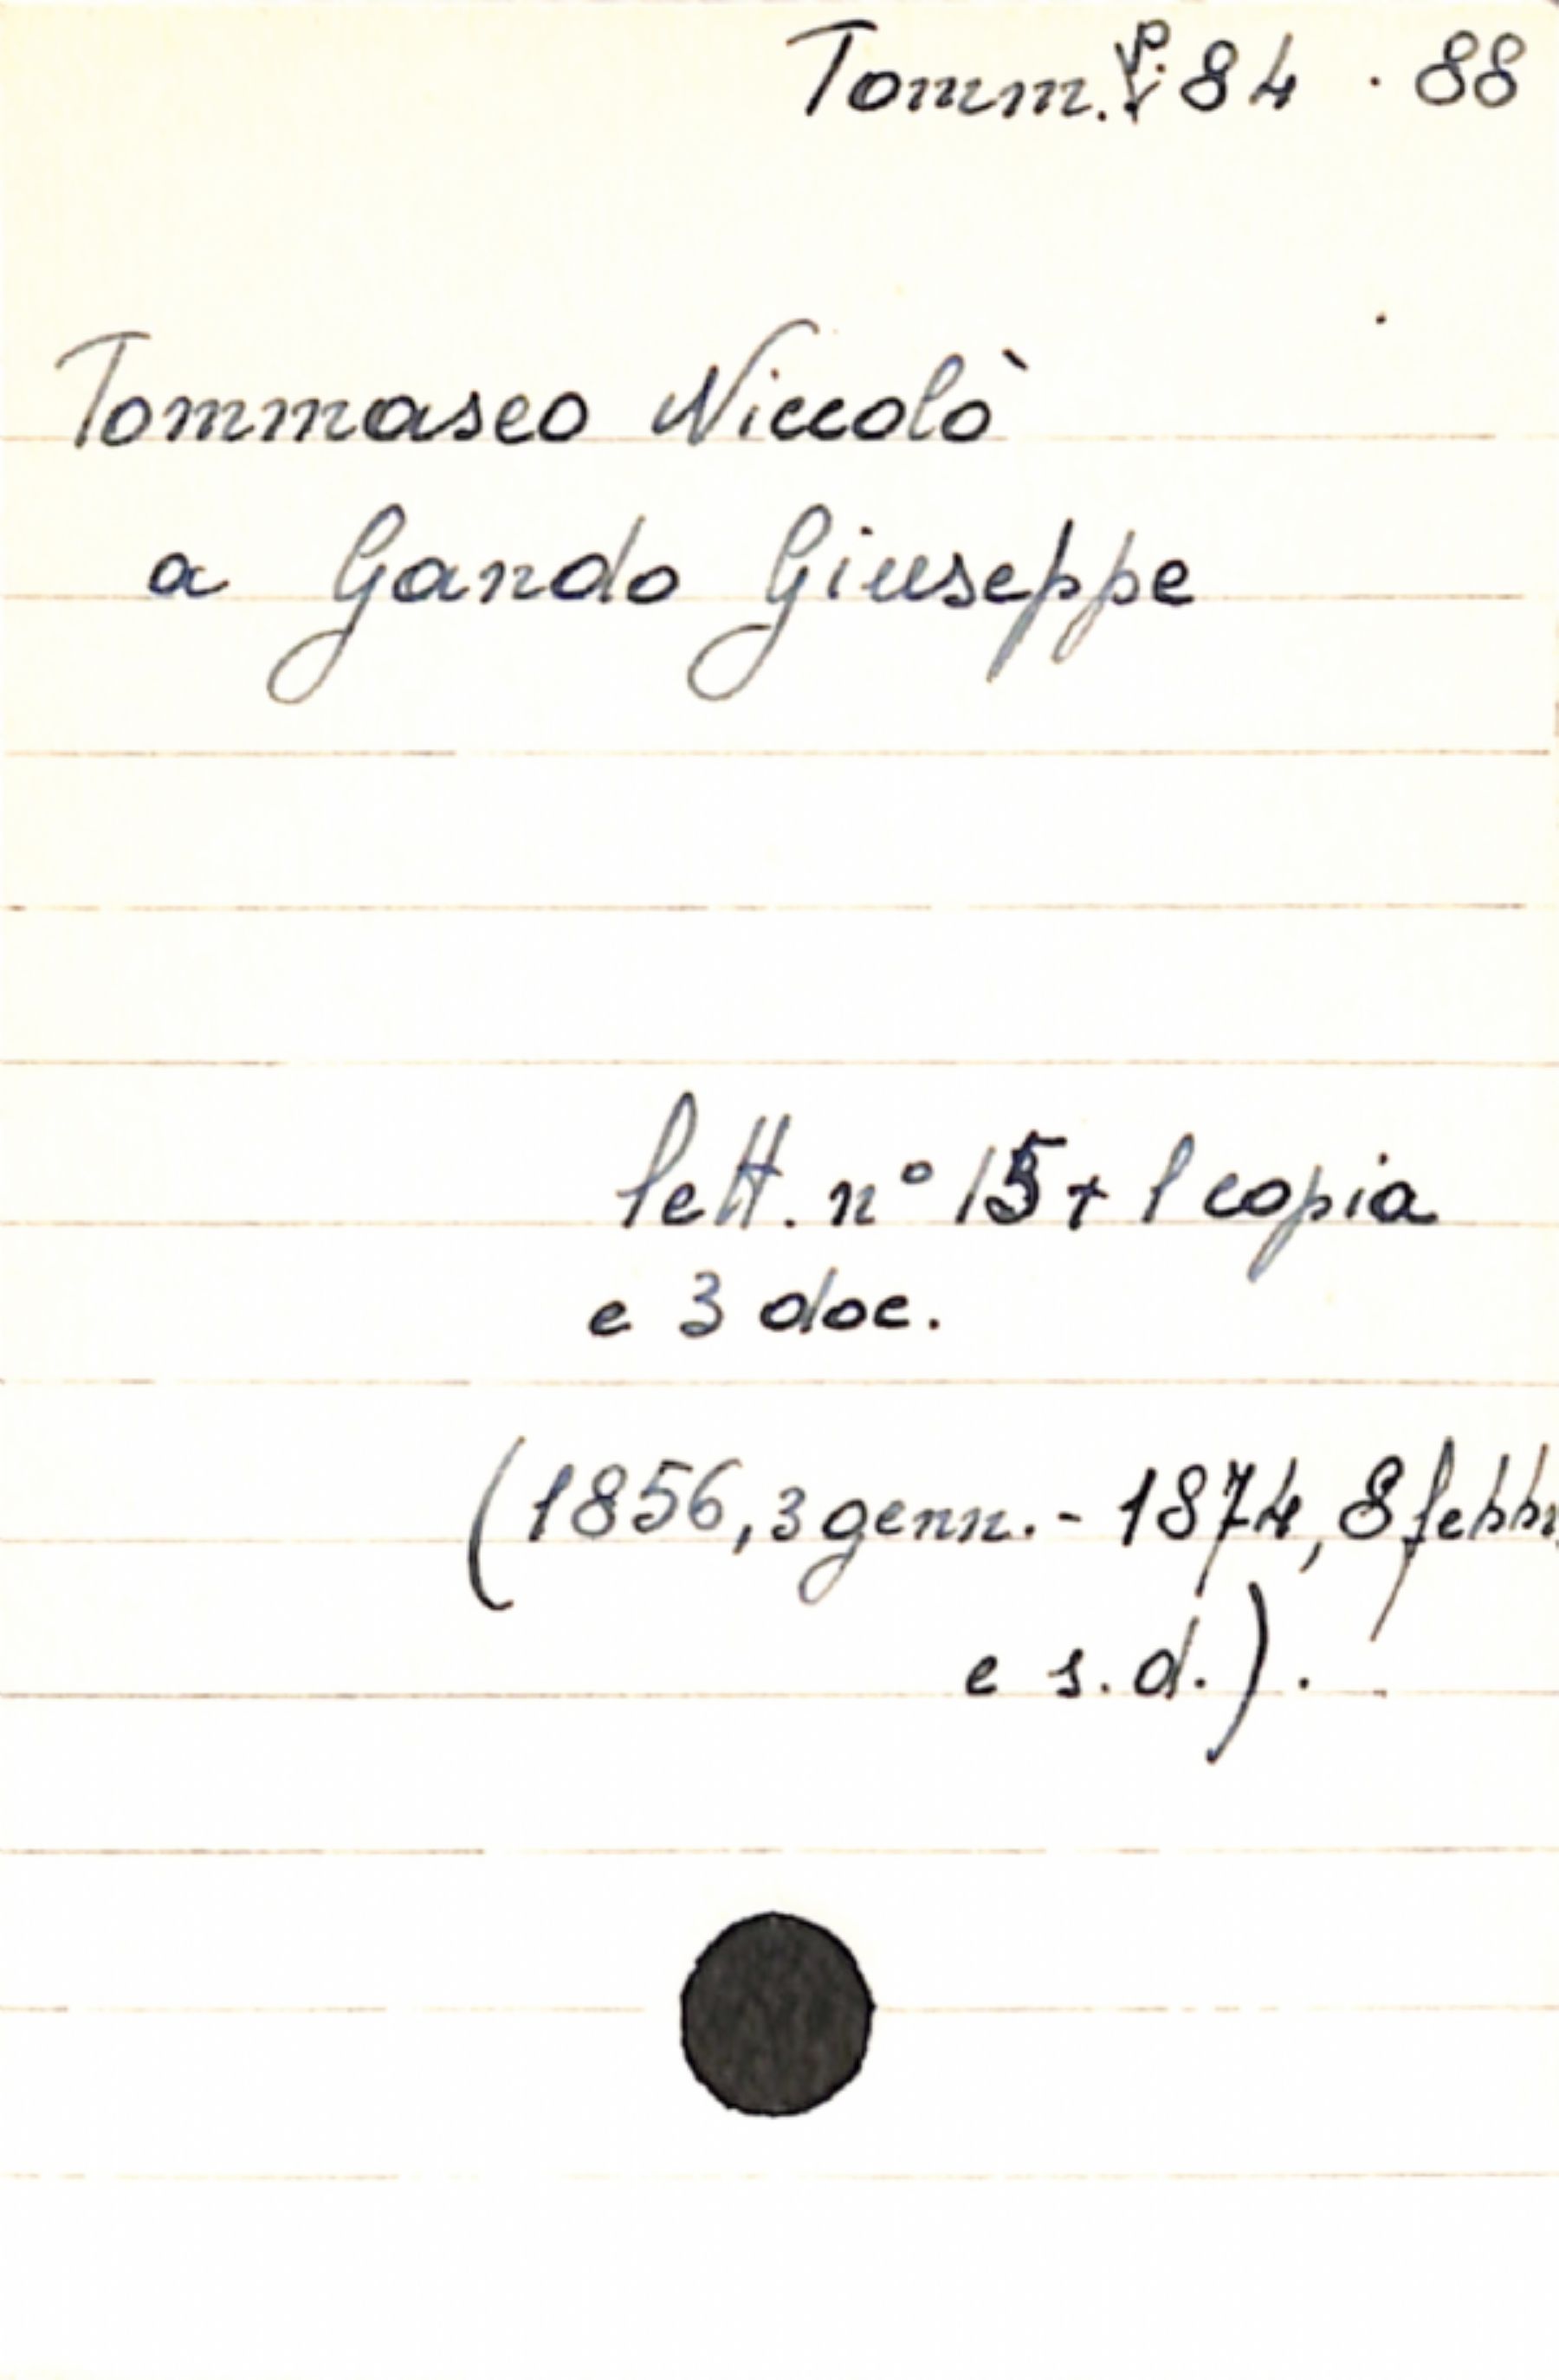 Tomm. P. 84 . 88
Tommaseo Niccolò
a Gando Giuseppe
lett. n° 15 + 1 copia
e 3 doc.
(1856, 3 genn. - 1874, 8 febbr.
e s.d.).